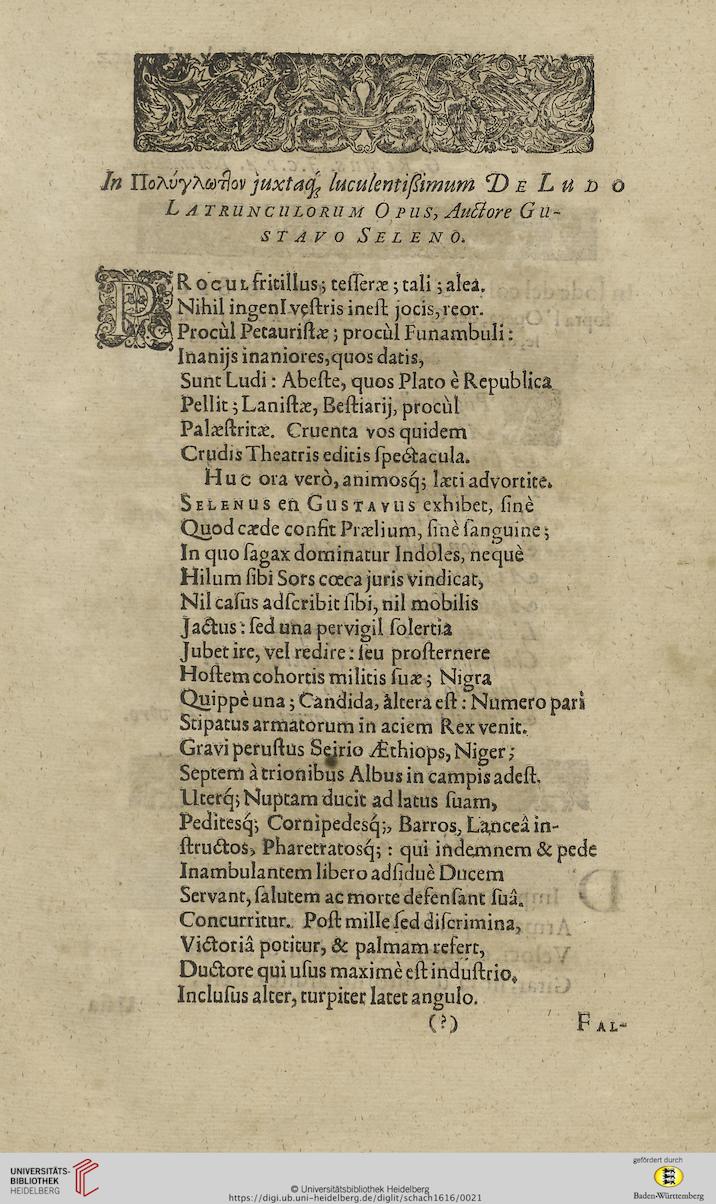 In Πολύγλωτ]ον juxtaq́; luculentißimum DE LUDO
LATRUNCULORUM OPUS, Auctore GU-
STAVO SELENO.
PROCUL fritillus; tesseræ; tali; aleâ.
Nihil ingenI vestris inest jocis, reor.
Procùl Petauristæ; procùl Funambuli:
Inanijs inaniores, quos datis,
Sunt Ludi: Abeste, quos Plato è Republica
Pellit; Lanistæ, Bestiarij, procùl
Palæstritæ. Cruenta vos quidem
Crudis Theatris editis spectacula.
Huc ora verò, animosq́; læti advortite.
SELENUS en GUSTAVUS exhibet, sinè
Quod cæde confit Prælium, sinè sanguine;
In quo sagax dominatur Indoles, nequè
Hilum sibi Sors cœca juris vindicat,
Nil casus adscribit sibi, nil mobilis
Jactus: sed una pervigil solertia
Jubet ire, vel redire: seu prosternere
Hostem cohortis militis suæ; Nigra
Quippè una; Candida, àltera est: Numero pari
Stipatus armatorum in aciem Rex venit.
Gravi perustus Seirio Æthiops, Niger;
Septem à trionibus Albus in campis adest.
Uterq́; Nuptam ducit ad latus suam,
Peditesq́; Cornipedesq́;, Barros, Lanceâ in-
structos, Pharetratosq́; : qui indemnem & pede
Inambulantem libero adsiduè Ducem
Servant, salutem ac morte defensant suâ.
Concurritur. Post mille sed discrimina,
Victoriâ potitur, & palmam refert,
Ductore qui usus maximè est industrio.
Inclusus alter, turpiter latet angulo.
(?) FAL-
UNIVERSITÄTS-
BIBLIOTHEK
HEIDELBERG
© Universitätsbibliothek Heidelberg
https://digi.ub.uni-heidelberg.de/diglit/schach1616/0021
gefördert durch
Baden-Württemberg